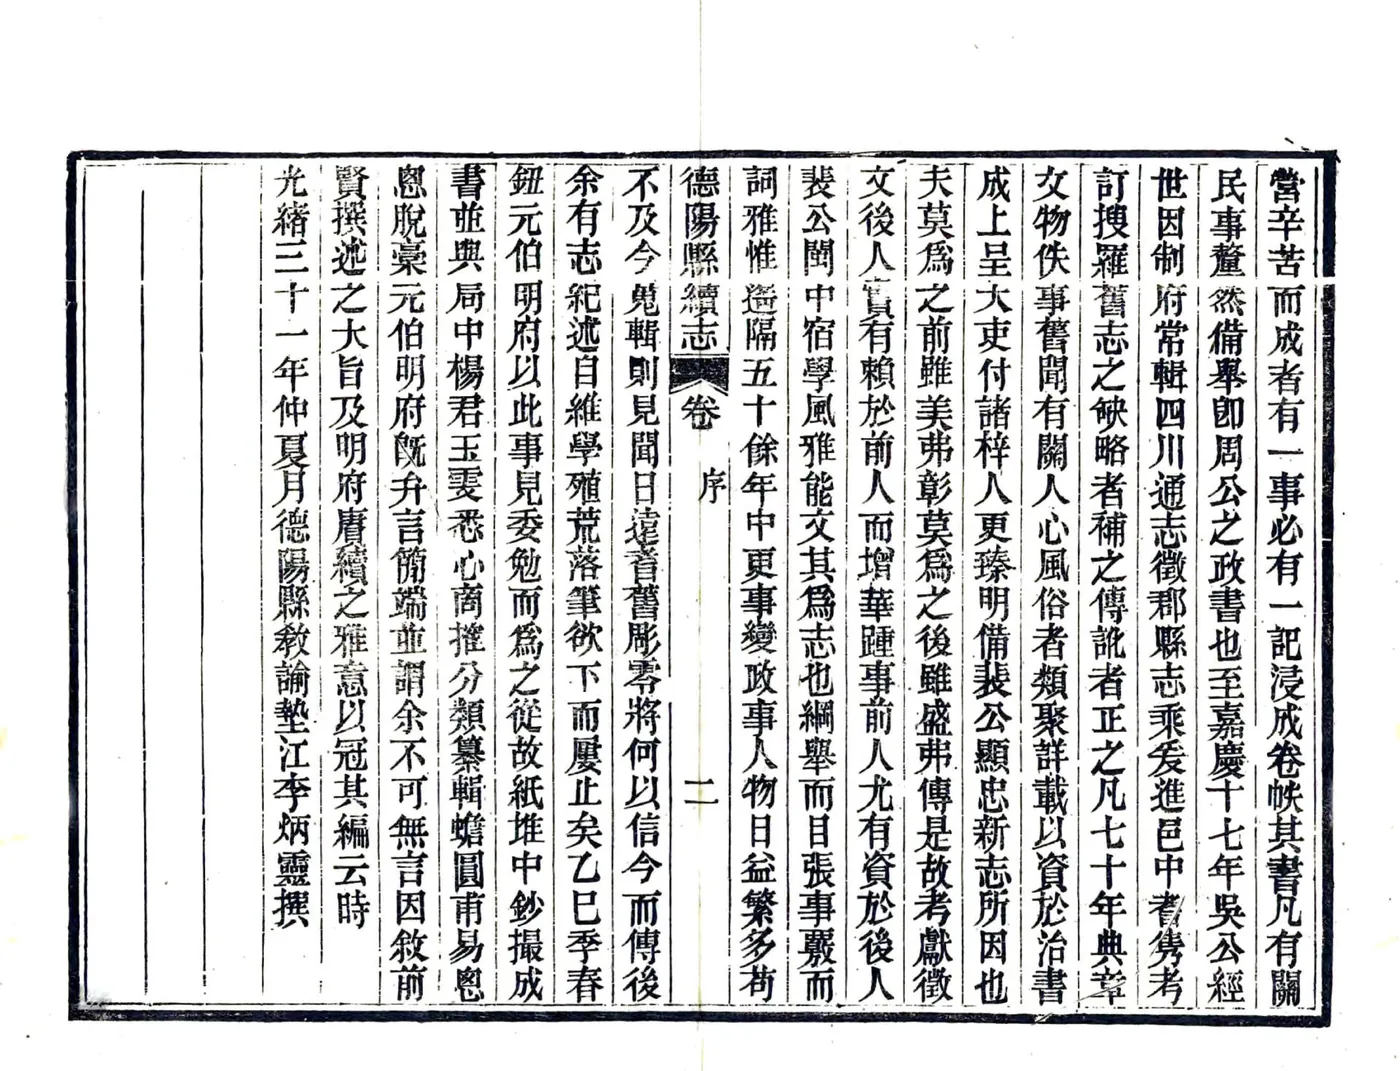 營辛苦而成者有一事必有一記浸成卷帙其書凡有關
民事釐然備舉卽周公之政書也至嘉慶十七年吳公經
世因制府常輯四川通志徵郡縣志乘爰進邑中耆雋考
訂搜羅舊志之缺略者補之傳訛者正之凡七十年典章
文物佚事舊聞有關人心風俗者類聚詳載以資於治書
成上呈大吏付諸梓人更臻明備裴公顯忠新志所因也
夫莫爲之前雖美弗彰莫爲之後雖盛弗傳是故考獻徵
文後人實有賴於前人而增華踵事前人尤有資於後人
裴公閩中宿學風雅能文其爲志也綱舉而目張事覈而
詞雅惟遙隔五十餘年中更事變政事人物日益繁多苟
德陽縣續志 卷 序 二
不及今蒐輯則見聞日遠耆舊彫零將何以信今而傳後
余有志紀述自維學殖荒落筆欲下而屢止矣乙巳季春
鈕元伯明府以此事見委勉而爲之從故紙堆中鈔撮成
書並與局中楊君玉雯悉心商搉分類纂輯蟾圓甫易恖
恖脫稾元伯明府旣弁言簡端並謂余不可無言因敘前
賢撰述之大旨及明府賡續之雅意以冠其編云時
光緒三十一年仲夏月德陽縣敎諭墊江李炳靈撰